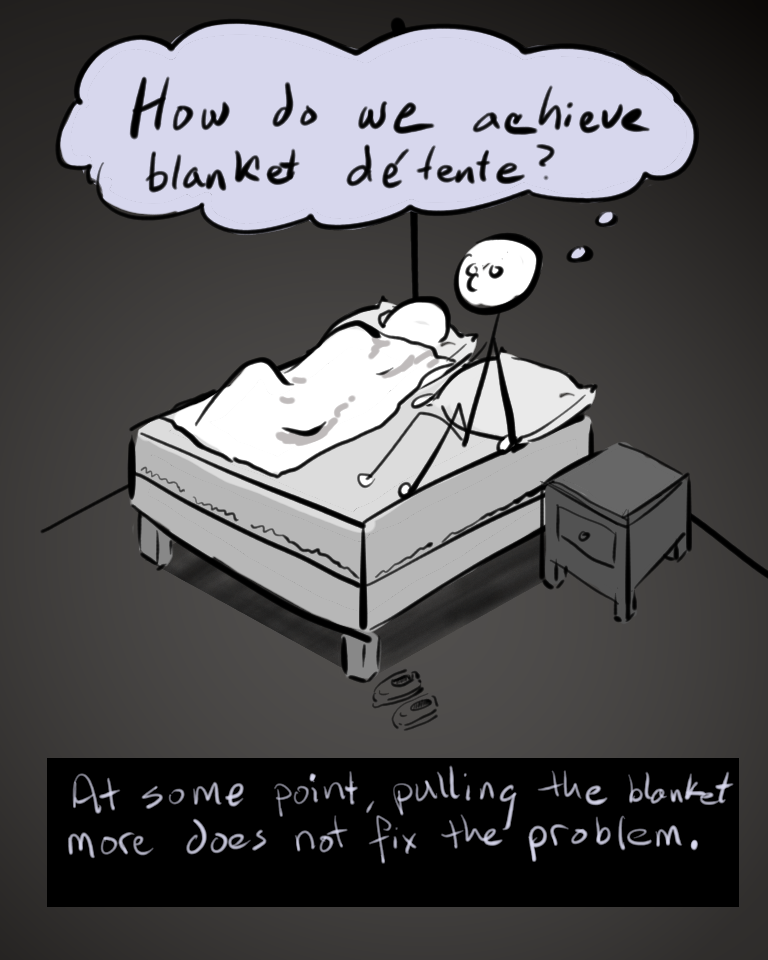 How do we achieve
blanket détente?
At some point, pulling the blanket
more does not fix the problem.